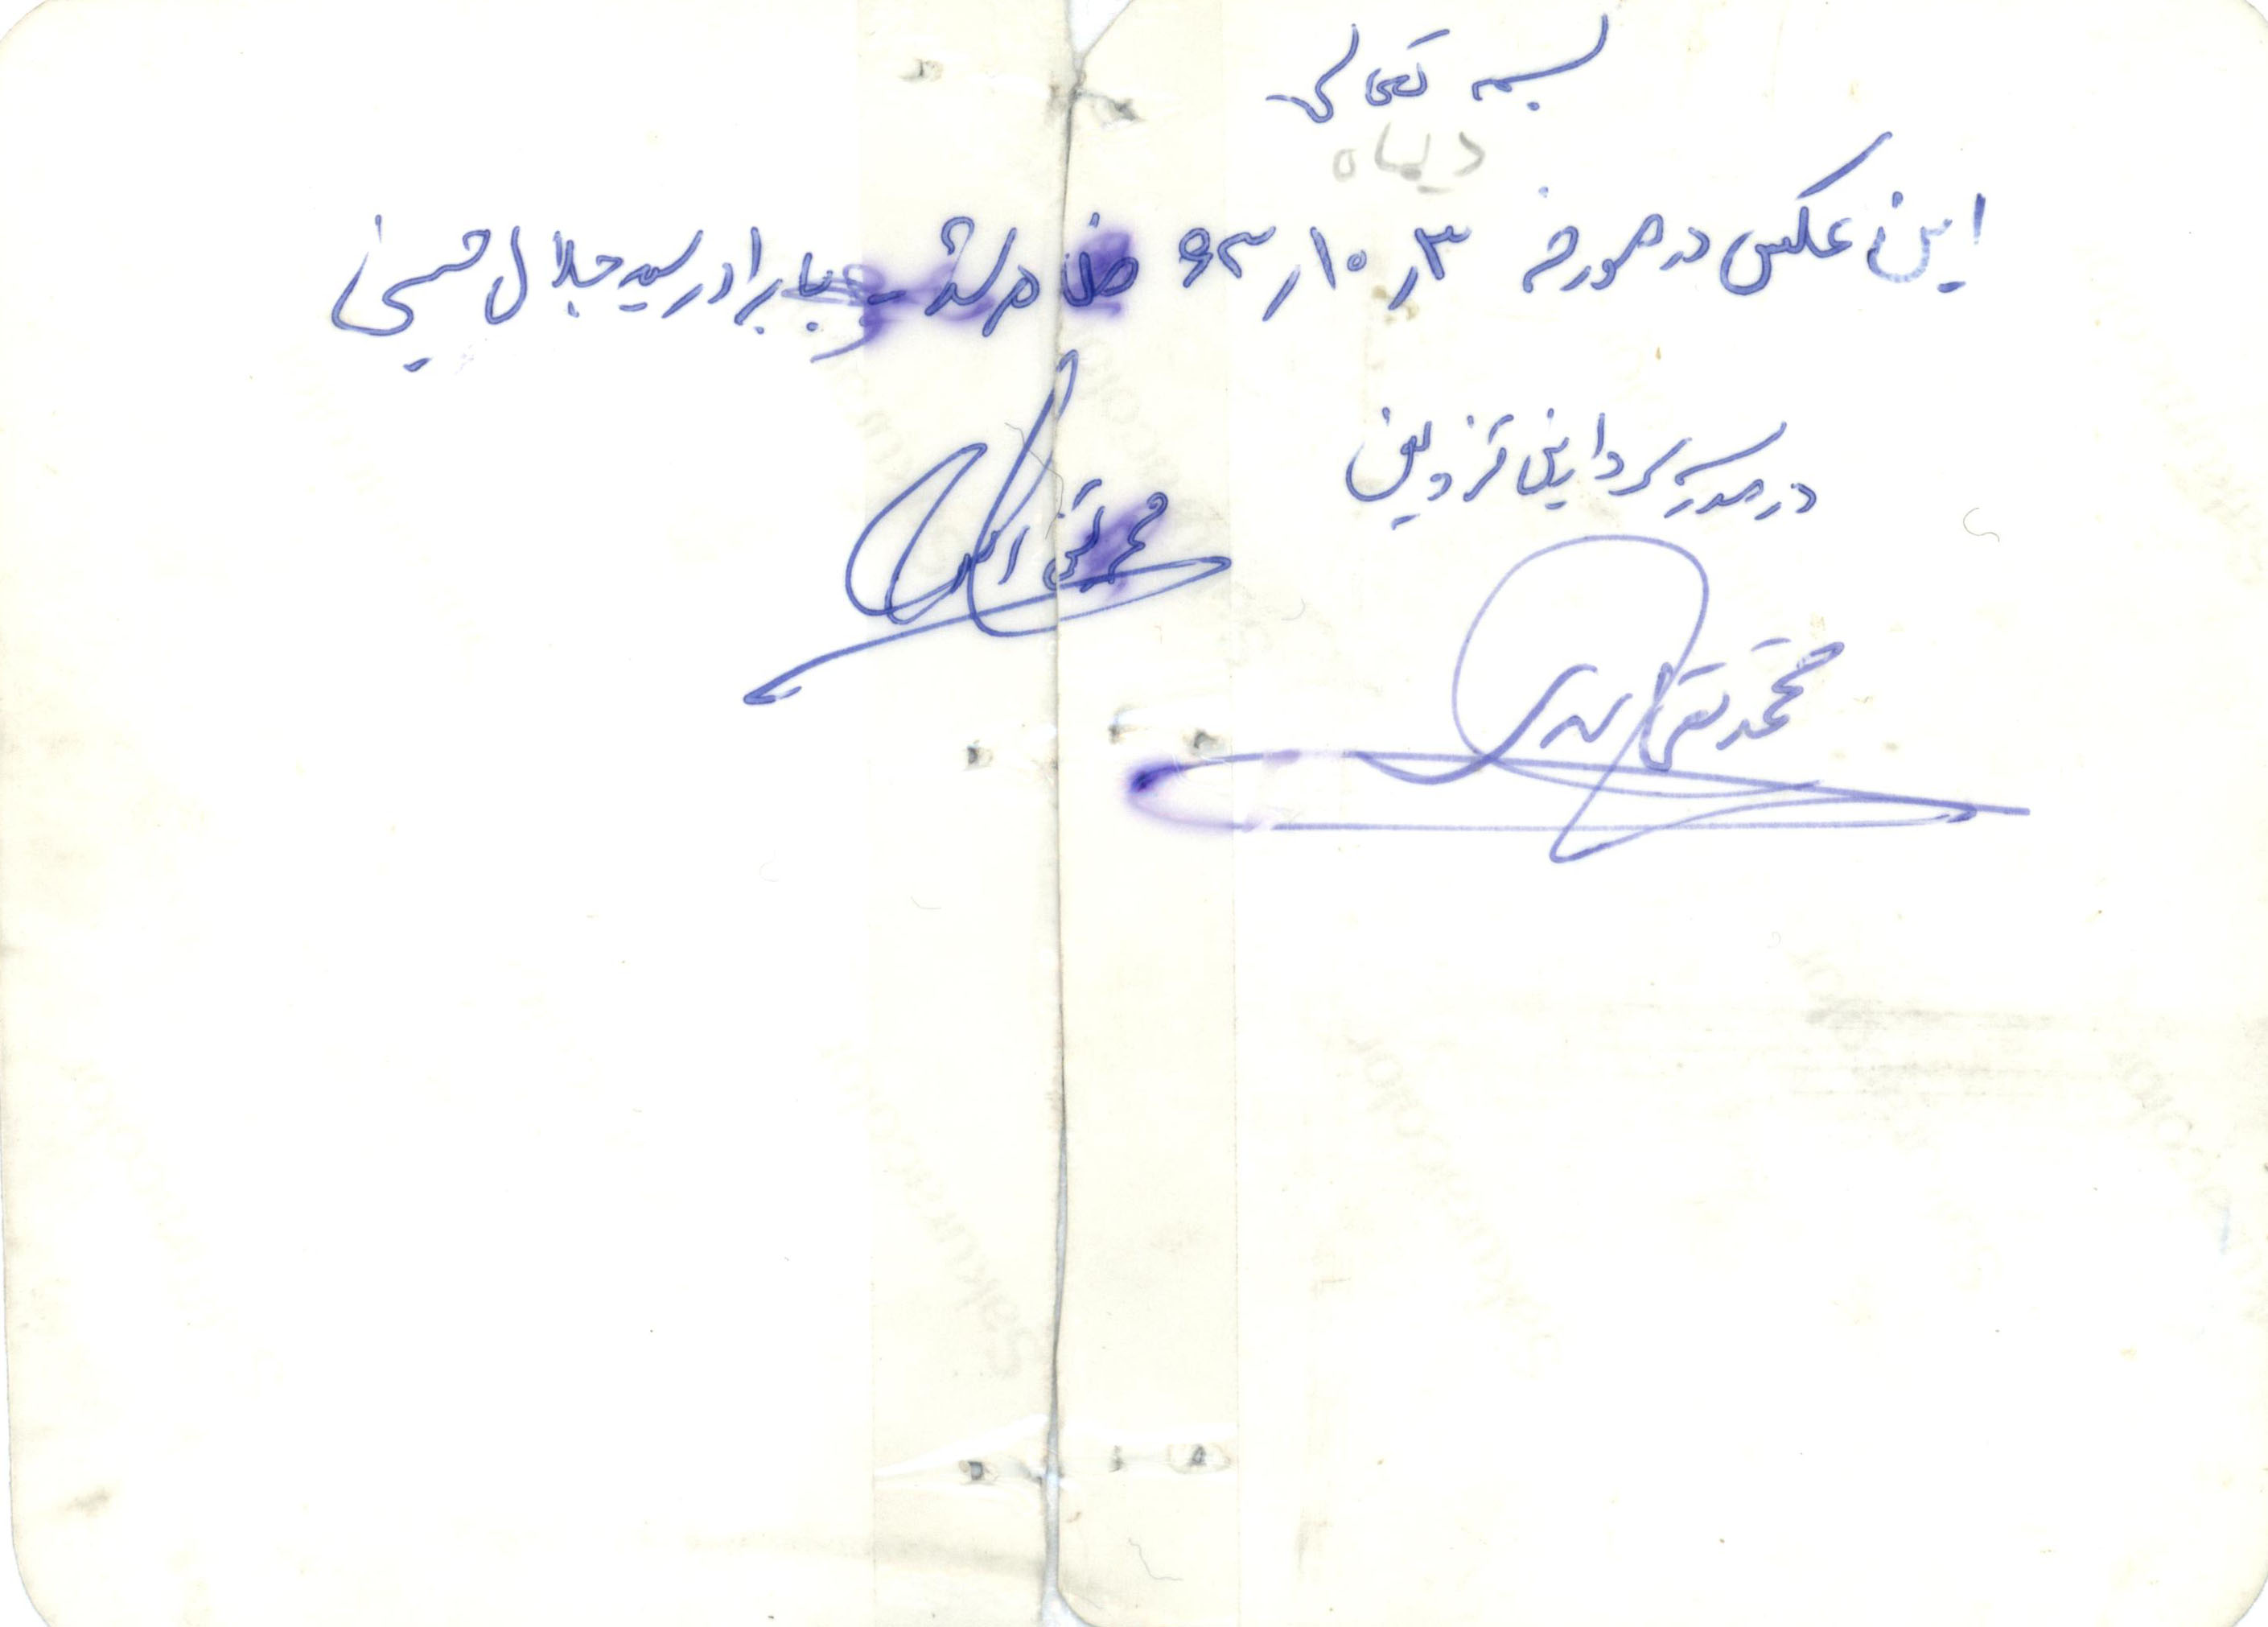 بسمه تعالی
دیماه
این عکس در مورخه ۳ر۱۰ر۶۳ ظاهر شد - با برادر سید جلال حسینی
در مدرسه سردارین قزوین
محمد تقی
محمد تقی